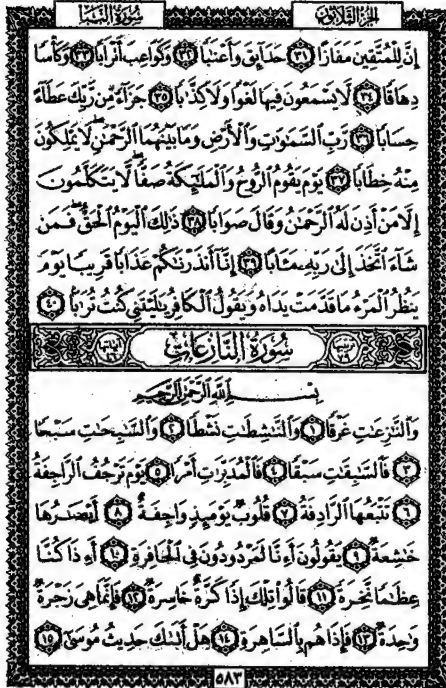 الجزء الثلاثون سورة النبأ
إِنَّ لِلْمُتَّقِينَ مَفَازًا ٣١ حَدَآئِقَ وَأَعْنَٰبًا ٣٢ وَكَوَاعِبَ أَتْرَابًا ٣٣ وَكَأْسًا
دِهَاقًا ٣٤ لَّا يَسْمَعُونَ فِيهَا لَغْوًا وَلَا كِذَّٰبًا ٣٥ جَزَآءً مِّن رَّبِّكَ عَطَآءً
حِسَابًا ٣٦ رَّبِّ ٱلسَّمَٰوَٰتِ وَٱلْأَرْضِ وَمَا بَيْنَهُمَا ٱلرَّحْمَٰنِ لَا يَمْلِكُونَ
مِنْهُ خِطَابًا ٣٧ يَوْمَ يَقُومُ ٱلرُّوحُ وَٱلْمَلَٰٓئِكَةُ صَفًّا لَّا يَتَكَلَّمُونَ
إِلَّا مَنْ أَذِنَ لَهُ ٱلرَّحْمَٰنُ وَقَالَ صَوَابًا ٣٨ ذَٰلِكَ ٱلْيَوْمُ ٱلْحَقُّ فَمَن
شَآءَ ٱتَّخَذَ إِلَىٰ رَبِّهِۦ مَـَٔابًا ٣٩ إِنَّآ أَنذَرْنَٰكُمْ عَذَابًا قَرِيبًا يَوْمَ
يَنظُرُ ٱلْمَرْءُ مَا قَدَّمَتْ يَدَاهُ وَيَقُولُ ٱلْكَافِرُ يَٰلَيْتَنِى كُنتُ تُرَٰبًۢا ٤٠
سُورَةُ النَّازِعَاتِ
بِسْمِ ٱللَّهِ ٱلرَّحْمَٰنِ ٱلرَّحِيمِ
وَٱلنَّٰزِعَٰتِ غَرْقًا ١ وَٱلنَّٰشِطَٰتِ نَشْطًا ٢ وَٱلسَّٰبِحَٰتِ سَبْحًا
٣ فَٱلسَّٰبِقَٰتِ سَبْقًا ٤ فَٱلْمُدَبِّرَٰتِ أَمْرًا ٥ يَوْمَ تَرْجُفُ ٱلرَّاجِفَةُ
٦ تَتْبَعُهَا ٱلرَّادِفَةُ ٧ قُلُوبٌ يَوْمَئِذٍ وَاجِفَةٌ ٨ أَبْصَٰرُهَا
خَٰشِعَةٌ ٩ يَقُولُونَ أَءِنَّا لَمَرْدُودُونَ فِى ٱلْحَافِرَةِ ١٠ أَءِذَا كُنَّا
عِظَٰمًا نَّخِرَةً ١١ قَالُوا۟ تِلْكَ إِذًا كَرَّةٌ خَاسِرَةٌ ١٢ فَإِنَّمَا هِىَ زَجْرَةٌ
وَٰحِدَةٌ ١٣ فَإِذَا هُم بِٱلسَّاهِرَةِ ١٤ هَلْ أَتَىٰكَ حَدِيثُ مُوسَىٰٓ ١٥
٥٨٣